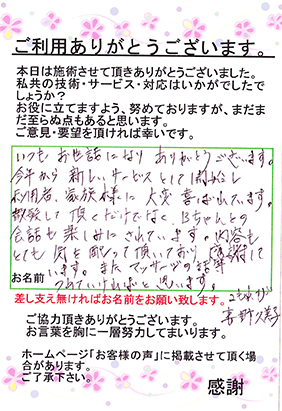 ご利用ありがとうございます。
本日は施術させて頂きありがとうございました。
私共の技術・サービス・対応はいかがでしたで
しょうか?
お役に立てますよう、努めておりますが、まだま
だ至らぬ点もあると思います。
ご意見・要望を頂ければ幸いです。
いつもお世話になりありがとうございます。
今年から新しいサービスとして開始し
利用者、家族様に大変喜ばれています。
散髪して頂くだけでなく、Bちゃんとの
会話も楽しみにされています。内容も
とても気を配って頂いており感謝して
います。また マッサージの
いければと思います。
お名前
差し支え無ければお名前をお願い致します。
ご協力頂きありがとうございます。
お言葉を胸に一層努力してまいります。
ホームページ「お客様の声」に掲載させて頂く場
合があります。
ご了承下さい。
感謝